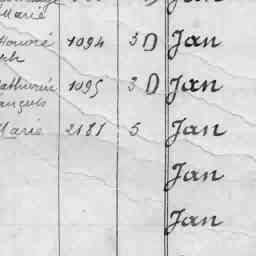 Marie
Honoré 1094 3 D Jan
Mathurin 1095 3 D Jan
Marie 2181 5 Jan
Jan
Jan